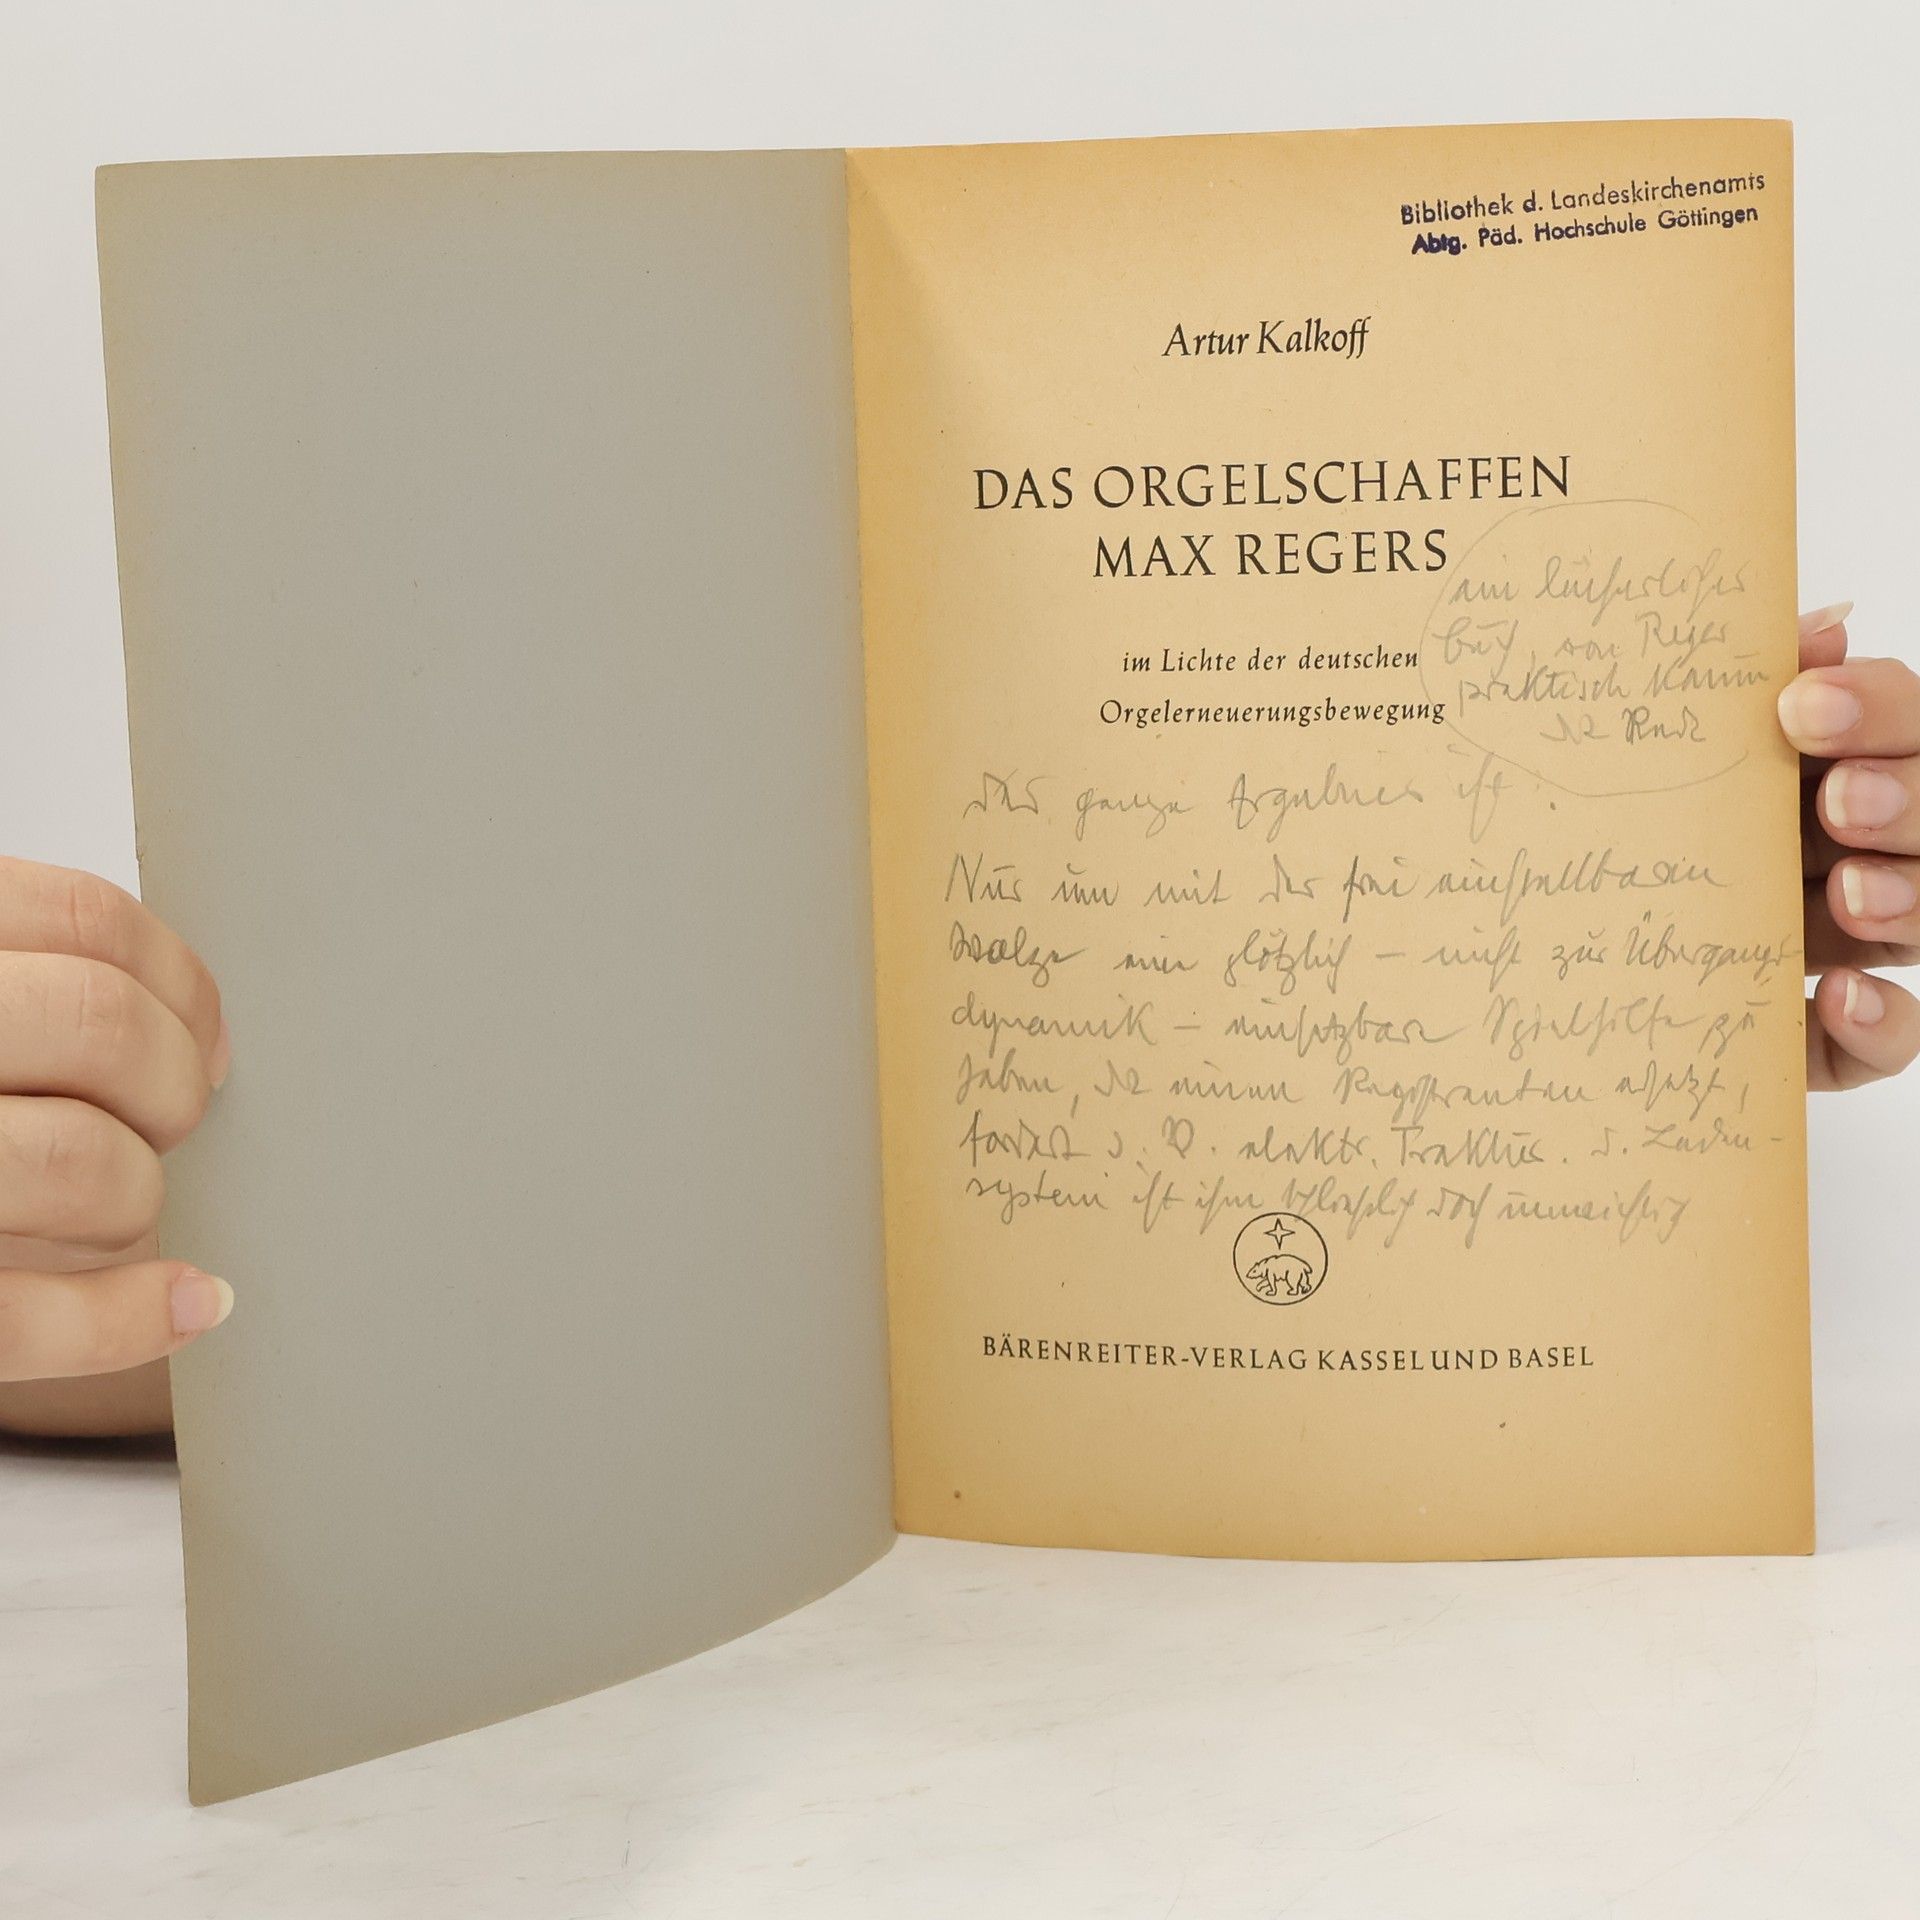 Bibliothek d. Landeskirchenamts
Abtg. Päd. Hochschule Göttingen
Artur Kalkoff
DAS ORGELSCHAFFEN
MAX REGERS
im Lichte der deutschen
Orgelerneuerungsbewegung
ein lächerliches
Buch, von Reger
praktisch kaum
die Rede
Das ganze Ergebnis ist:
Nur um mit der frei einstellbaren
Walze eine plötzlich – nicht zur Übergangs-
dynamik – einsetzbare Spielhilfe zu
haben, die einen Registranten ersetzt,
fordert d. V. elektr. Traktur. d. Laden-
system ist ihm schließlich doch unwichtig
BÄRENREITER-VERLAG KASSEL UND BASEL